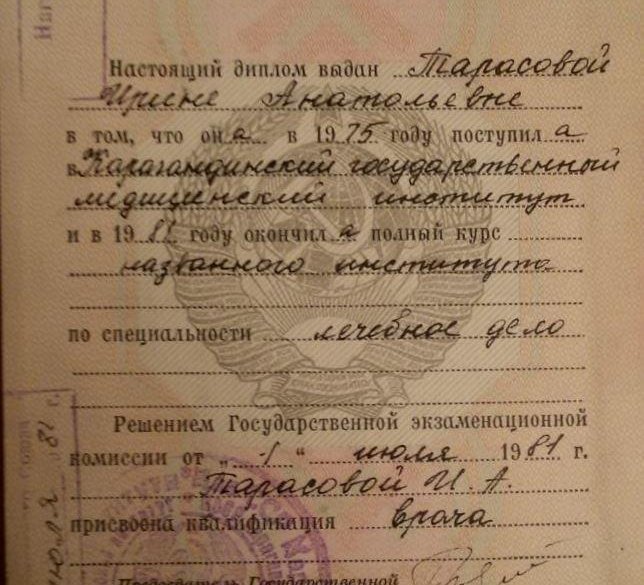 Настоящий диплом выдан Тарасовой
Ирине Анатольевне
в том, что она в 1975 году поступила
в Карагандинский государственный
медицинский институт
и в 1981 году окончила полный курс
названного института
по специальности лечебное дело
Решением Государственной экзаменационной
комиссии от „1“ июля 1981 г.
Тарасовой И. А.
присвоена квалификация врача
Председатель Государственной